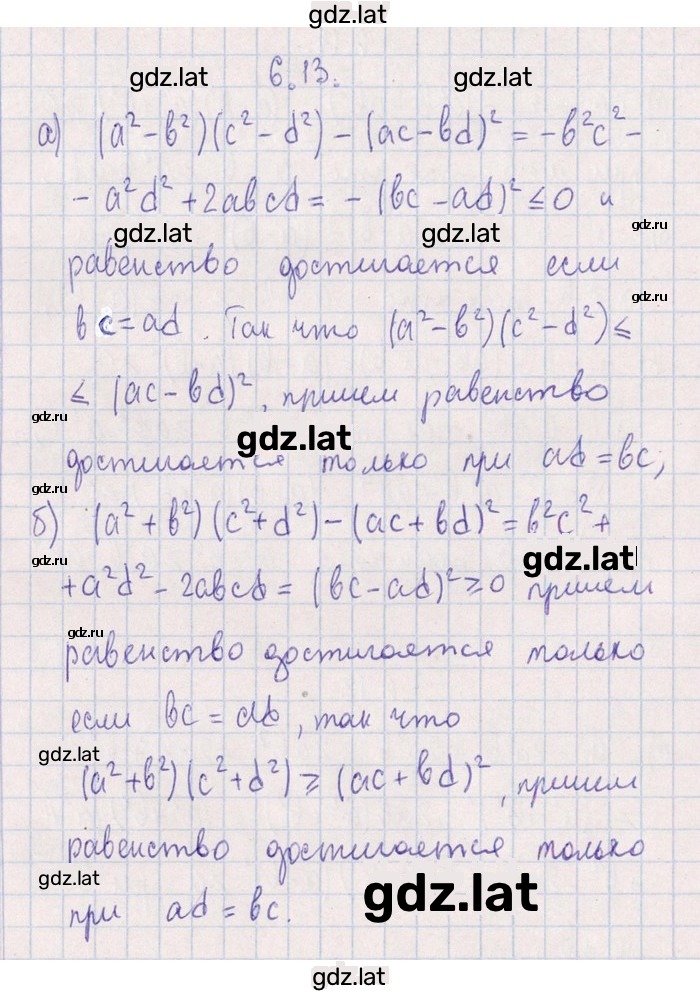 gdz.lat
6.13.
gdz.lat gdz.lat
а) (a²-b²)(c²-d²)-(ac-bd)²=-b²c²-
-a²d²+2abcd=-(bc-ad)²≤0 и
gdz.ru
gdz.lat gdz.lat
равенство достигается если
gdz.ru
bc=ad. Так что (a²-b²)(c²-d²)≤
≤(ac-bd)², причем равенство
gdz.ru
gdz.lat
достигается только при ad=bc;
б) (a²+b²)(c²+d²)-(ac+bd)²=b²c²+
gdz.ru
gdz.lat
+a²d²-2abcd=(bc-ad)²≥0 причем
gdz.ru
равенство достигается только
если bc=da, так что
gdz.lat
(a²+b²)(c²+d²)≥(ac+bd)², причем
равенство достигается только
gdz.lat
gdz.lat
при ad=bc.
gdz.lat